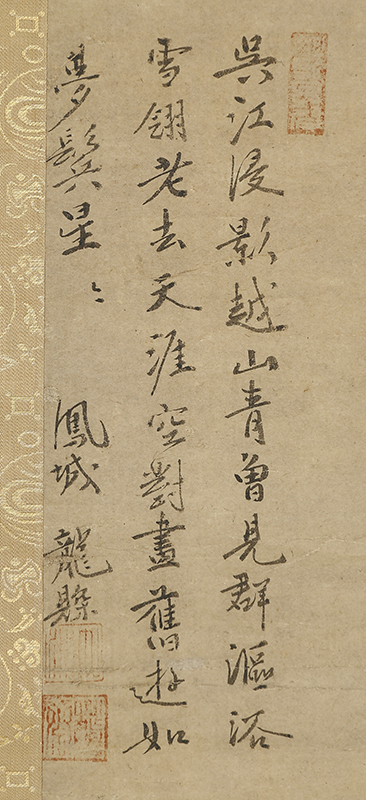 吳江浸影越山青曾見群漚浴
雪翎老去天涯空對畫舊遊如
夢鬂星〻
鳳城 龍縣